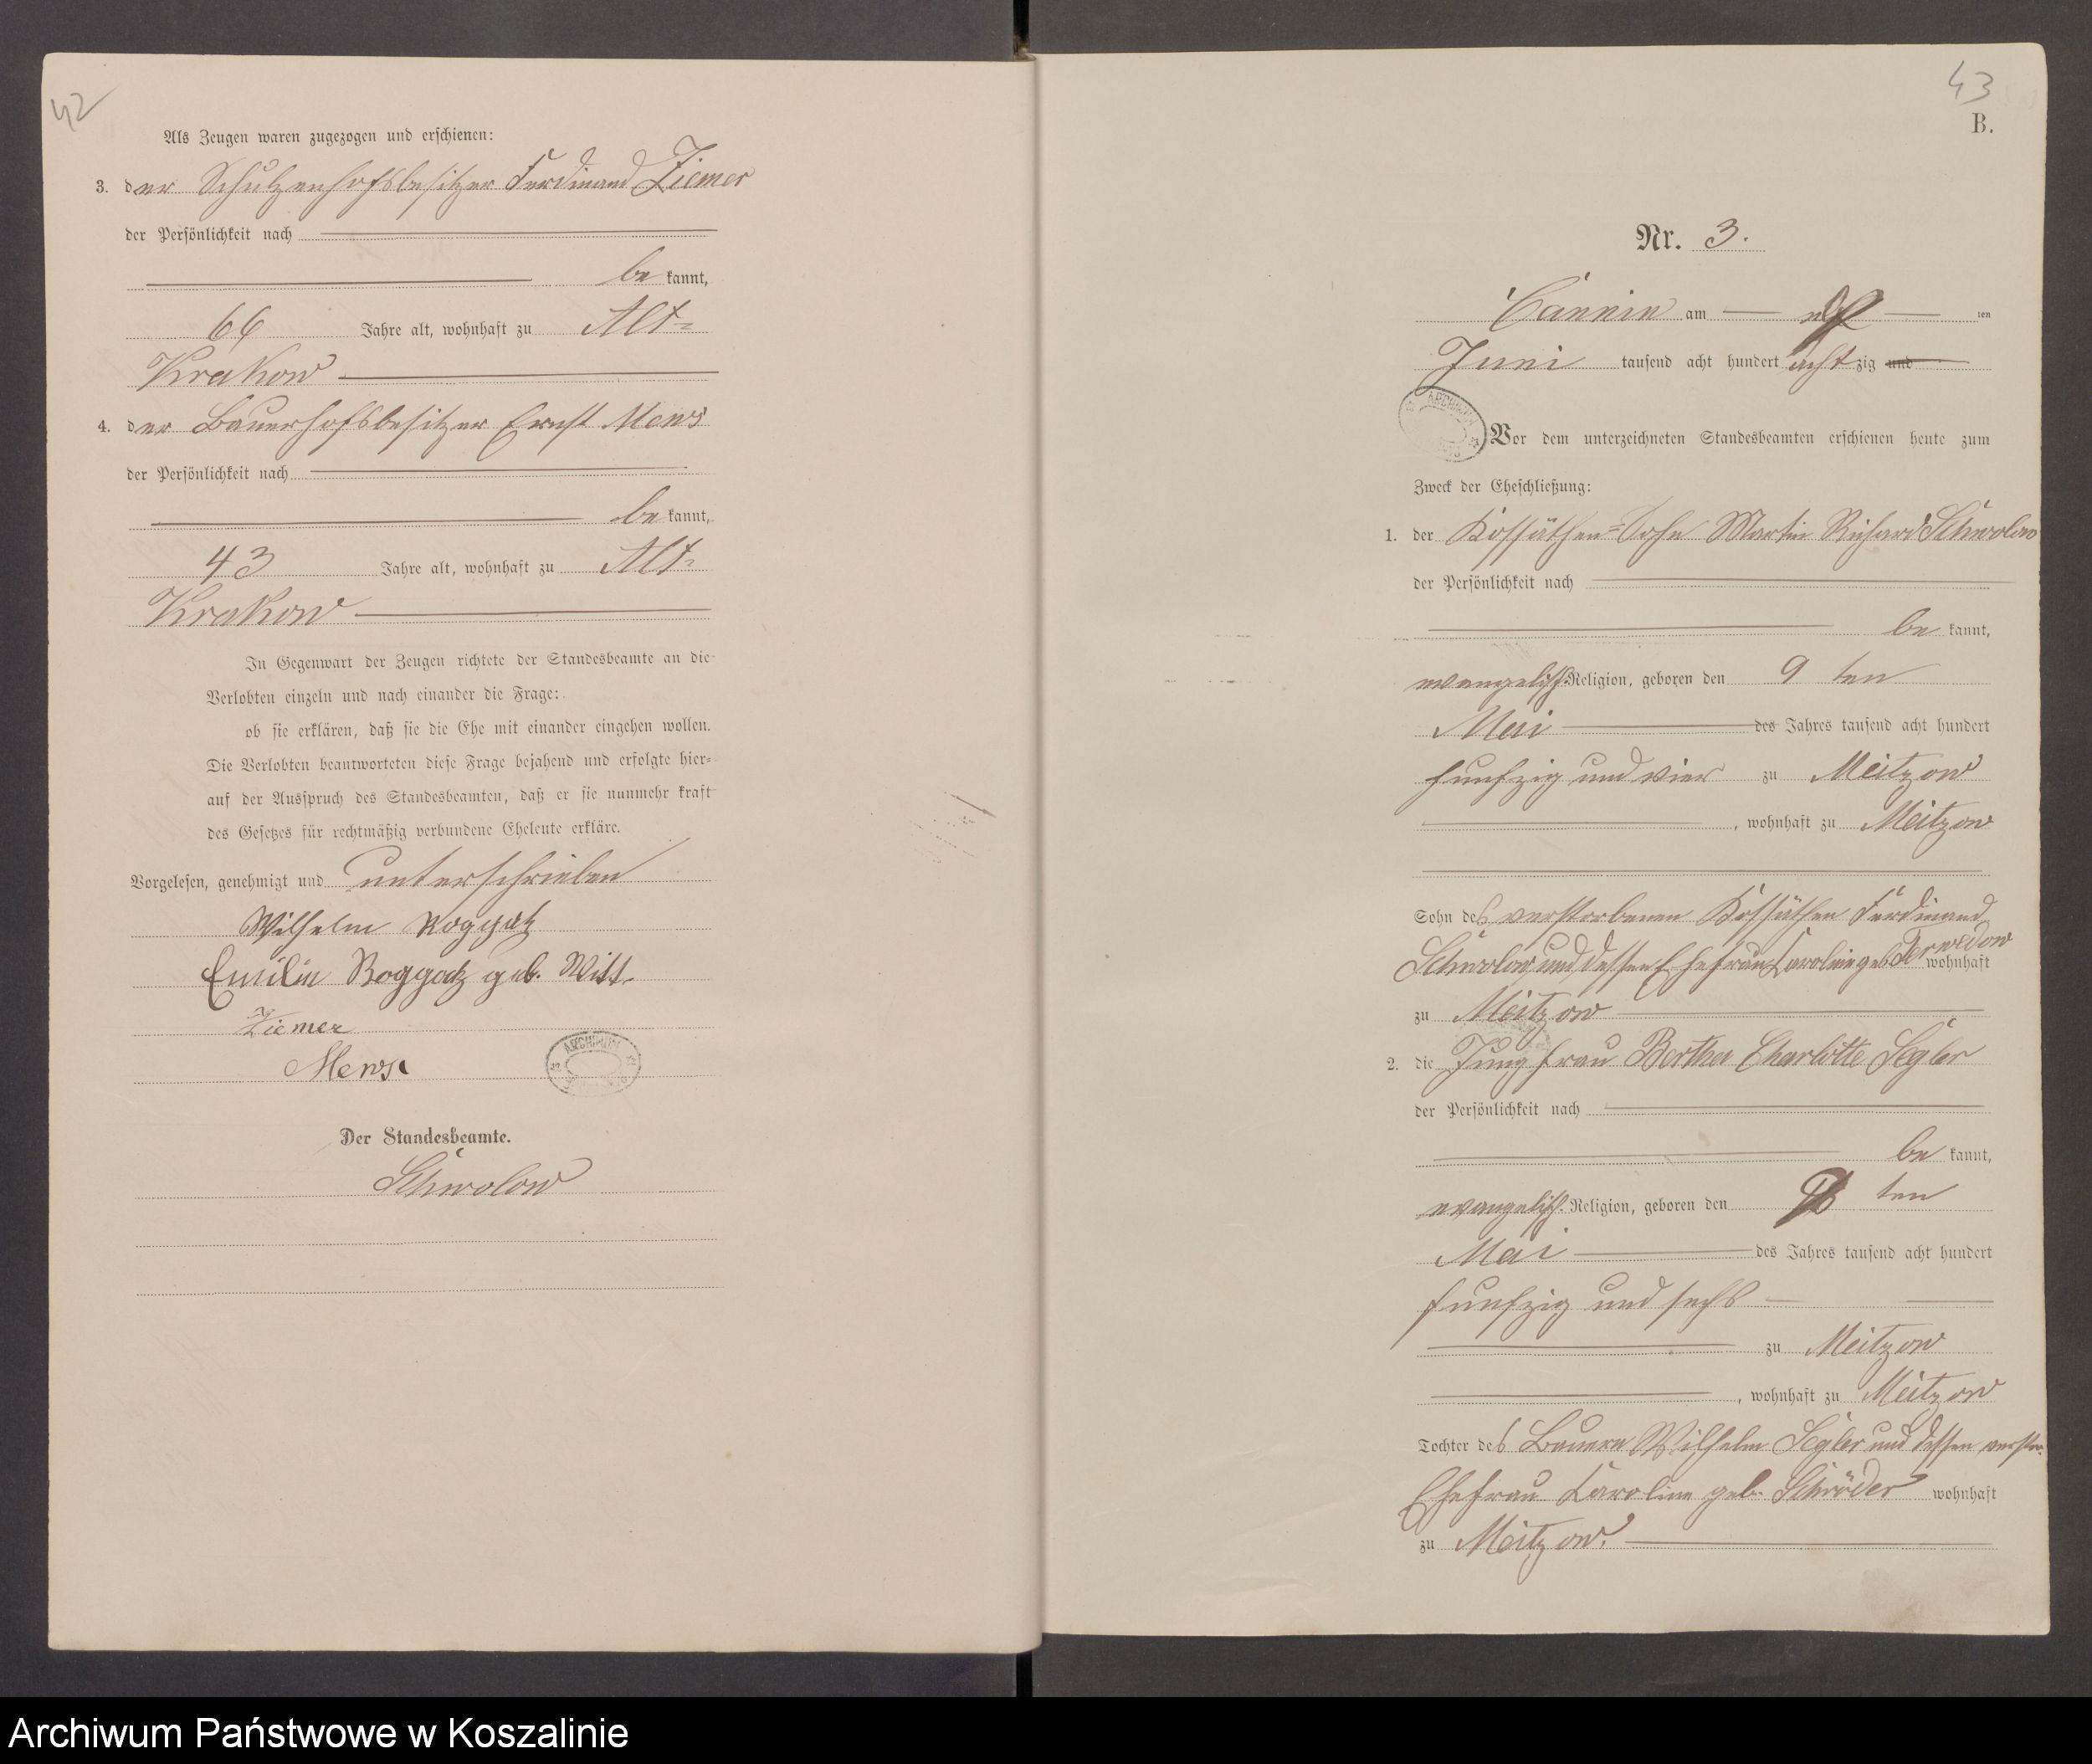 42
Als Zeugen waren zugezogen und erschienen:
3. der Schulzenhofsbesitzer Ferdinand Ziemer
der Persönlichkeit nach
be kannt,
66 Jahre alt, wohnhaft zu Alt-
Krakow
4. der Bauerhofsbesitzer Ernst Mews
der Persönlichkeit nach
be kannt,
43 Jahre alt, wohnhaft zu Alt-
Krakow
In Gegenwart der Zeugen richtete der Standesbeamte an die
Verlobten einzeln und nach einander die Frage:
ob sie erklären, daß sie die Ehe mit einander eingehen wollen.
Die Verlobten beantworteten diese Frage bejahend und erfolgte hier-
auf der Ausspruch des Standesbeamten, daß er sie nunmehr kraft
des Gesetzes für rechtmäßig verbundene Eheleute erkläre.
Vorgelesen, genehmigt und unterschrieben
Wilhelm Roggatz
Emilie Roggatz geb. Witt.
Ziemer
Mews
ARCHIWUM
Der Standesbeamte.
Schwolow
43
B.
Nr. 3.
Cannin am elf ten
Juni tausend acht hundert achtzig und
ARCHIWUM
Vor dem unterzeichneten Standesbeamten erschienen heute zum
Zweck der Eheschließung:
1. der Kossäthen-Sohn Martin Richard Schwolow
der Persönlichkeit nach
be kannt,
evangelisch. Religion, geboren den 9 ten
Mai des Jahres tausend acht hundert
funfzig und vier zu Meitzow
, wohnhaft zu Meitzow
Sohn des verstorbenen Kossäthen Ferdinand
Schwolow und dessen Ehefrau Caroline geb wohnhaft
zu Meitzow
2. die Jungfrau Bertha Charlotte Segler
der Persönlichkeit nach
be kannt,
evangelisch. Religion, geboren den ten
Mai des Jahres tausend acht hundert
funfzig und sechs
zu Meitzow
, wohnhaft zu Meitzow
Tochter des Bauern Wilhelm Segler und dessen verstor.
Ehefrau Karoline geb. Schröder wohnhaft
zu Meitzow.
Archiwum Państwowe w Koszalinie